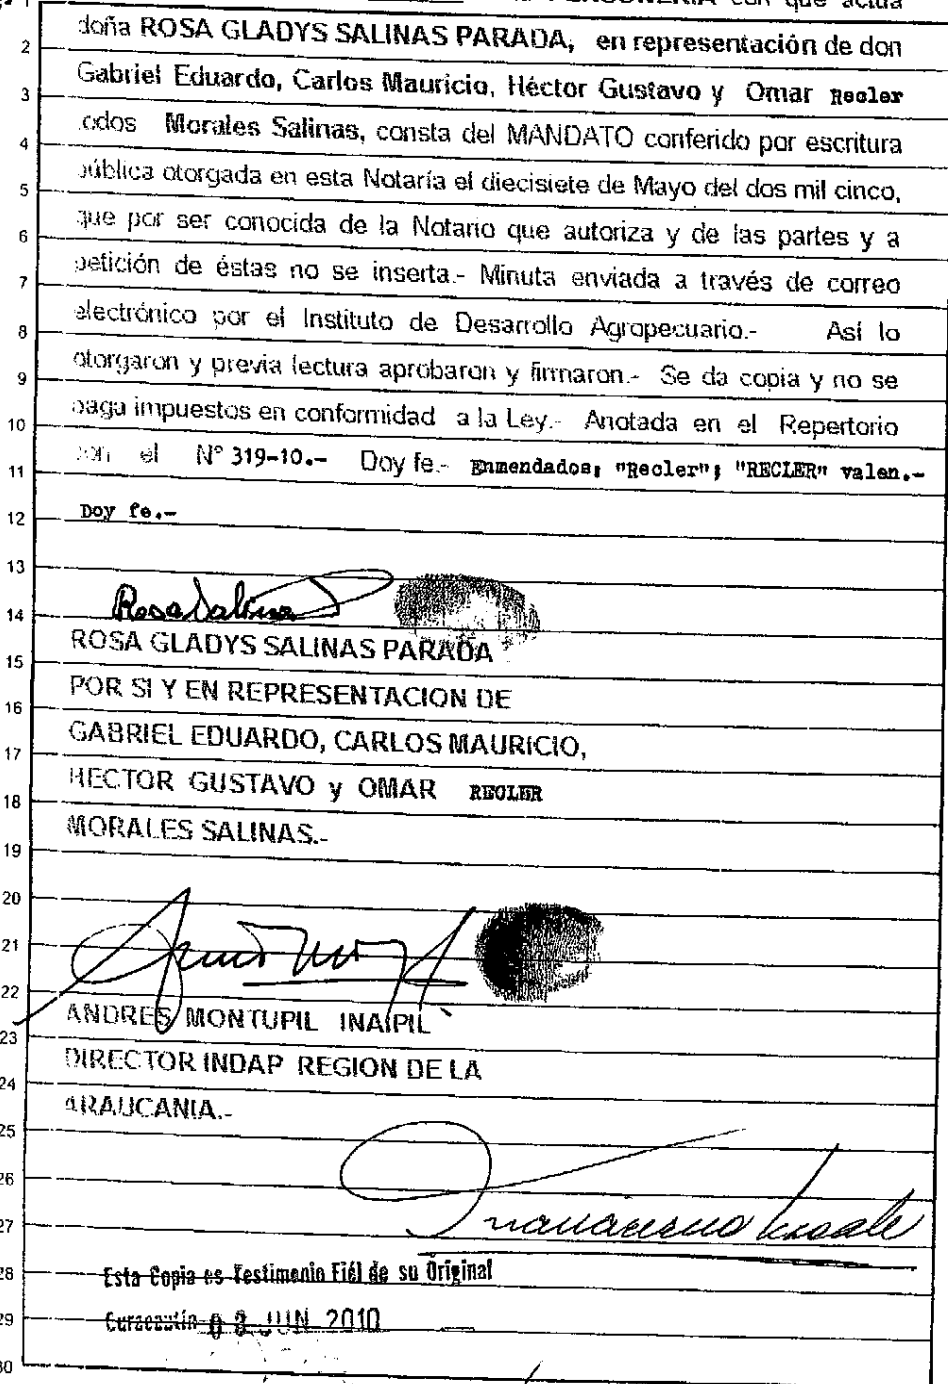 PERSONERIA con que actúa
2 doña ROSA GLADYS SALINAS PARADA, en representación de don
3 Gabriel Eduardo, Carlos Mauricio, Héctor Gustavo y Omar Recler
4 Morales Salinas, consta del MANDATO conferido por escritura
5 pública otorgada en esta Notaría el diecisiete de Mayo del dos mil cinco,
6 que por ser conocida de la Notario que autoriza y de las partes y a
7 petición de éstas no se inserta.- Minuta enviada a través de correo
8 electrónico por el Instituto de Desarrollo Agropecuario.- Así lo
9 otorgaron y previa lectura aprobaron y firmaron.- Se da copia y no se
10 paga impuestos en conformidad a la Ley.- Anotada en el Repertorio
11 con el N° 319-10.- Doy fe.- Enmendados; "Recler"; "RECLER" valen.-
12 Doy fe.-
13
14 Rosa Salinas
15 ROSA GLADYS SALINAS PARADA
16 POR SI Y EN REPRESENTACION DE
17 GABRIEL EDUARDO, CARLOS MAURICIO,
18 HECTOR GUSTAVO y OMAR RECLER
19 MORALES SALINAS.-
20
21
22
23 ANDRES MONTUPIL INAIPIL
24 DIRECTOR INDAP REGION DE LA
25 ARAUCANIA.-
26
27
28 Esta Copia es Testimonio Fiél de su Original
29 Curacautín 03 JUN 2010
30